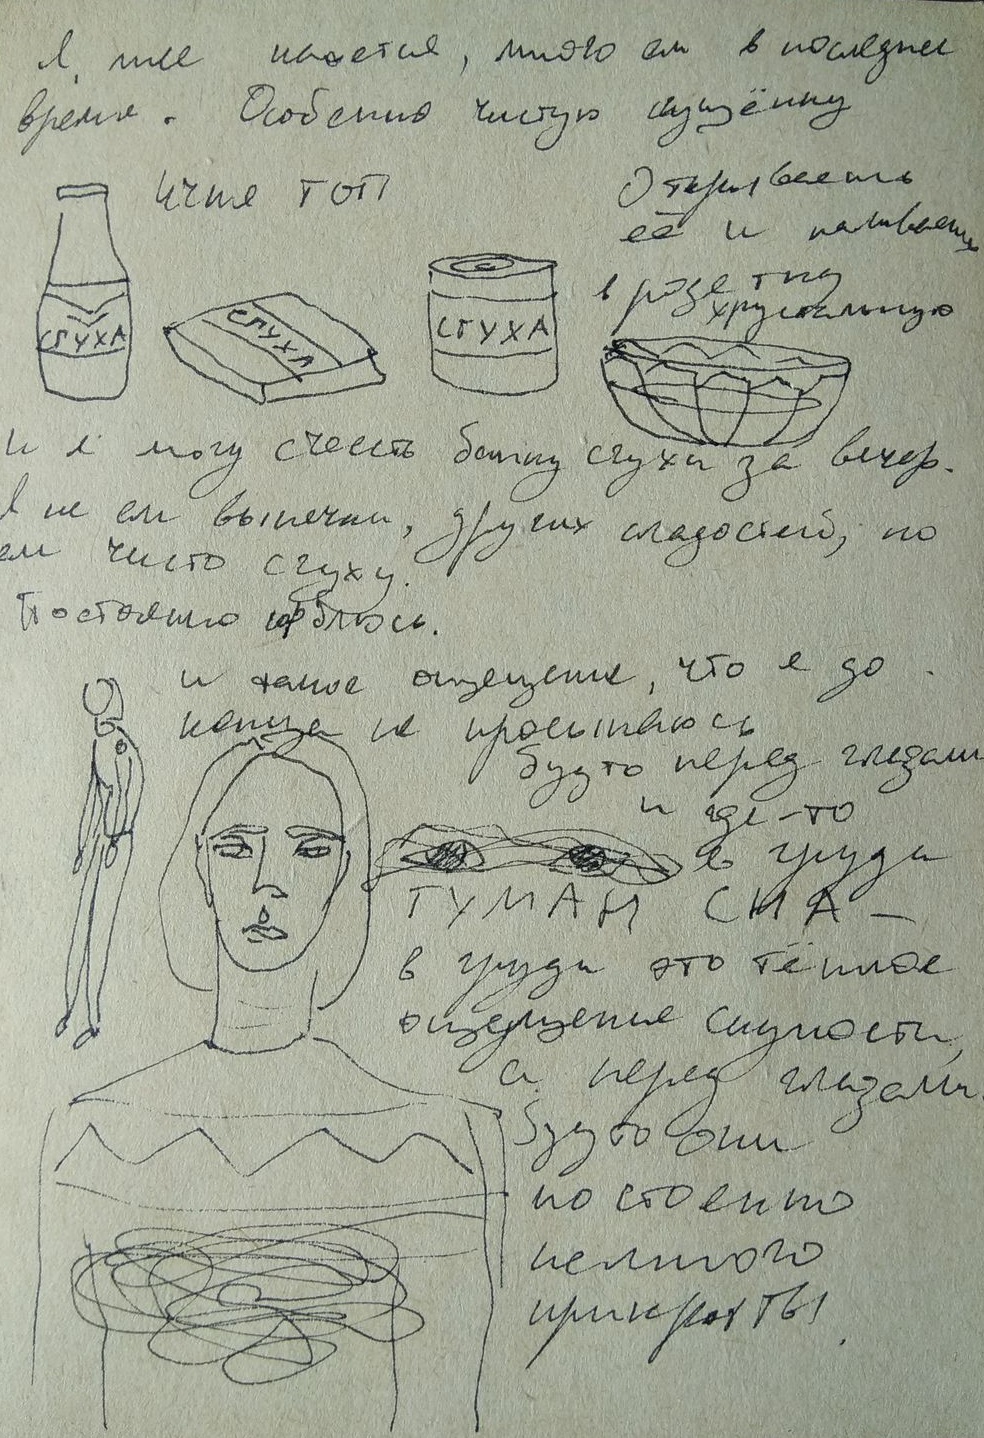 Я, мне кажется, много ем в последнее
время. Особенно чистую сгущёнку
ТОП
Открываешь
её и наливаешь
в розетку
хрустальную
СГУХА
СГУХА
СГУХА
и я могу съесть банку сгухи за вечер.
Я не ем выпечки, других сладостей, но
ем чисто сгуху.
Постоянно
и такое ощущение, что я до
конца не просыпаюсь
будто перед глазами
и где-то
в груди
ТУМАН СНА –
в груди это тёплое
ощущение скупости,
а перед глазами
будто они
постоянно
немного
прикрыты.